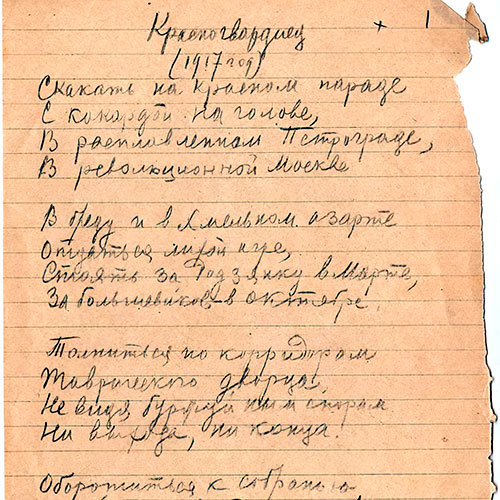 Красногвардиец + 1
(1917 год)
Скакать на красном параде
С кокардой на голове,
В расплавленном Петрограде,
В революционной Москве
В бреду и в хмельном азарте
Отдаться лихой игре,
Стоять за Родзянку в Марте,
За большевиков в октябре
Толпиться по корридорам
Таврического дворца,
Не видя буржуйным спорам
Ни выхода, ни конца.
Оборотиться к собранью